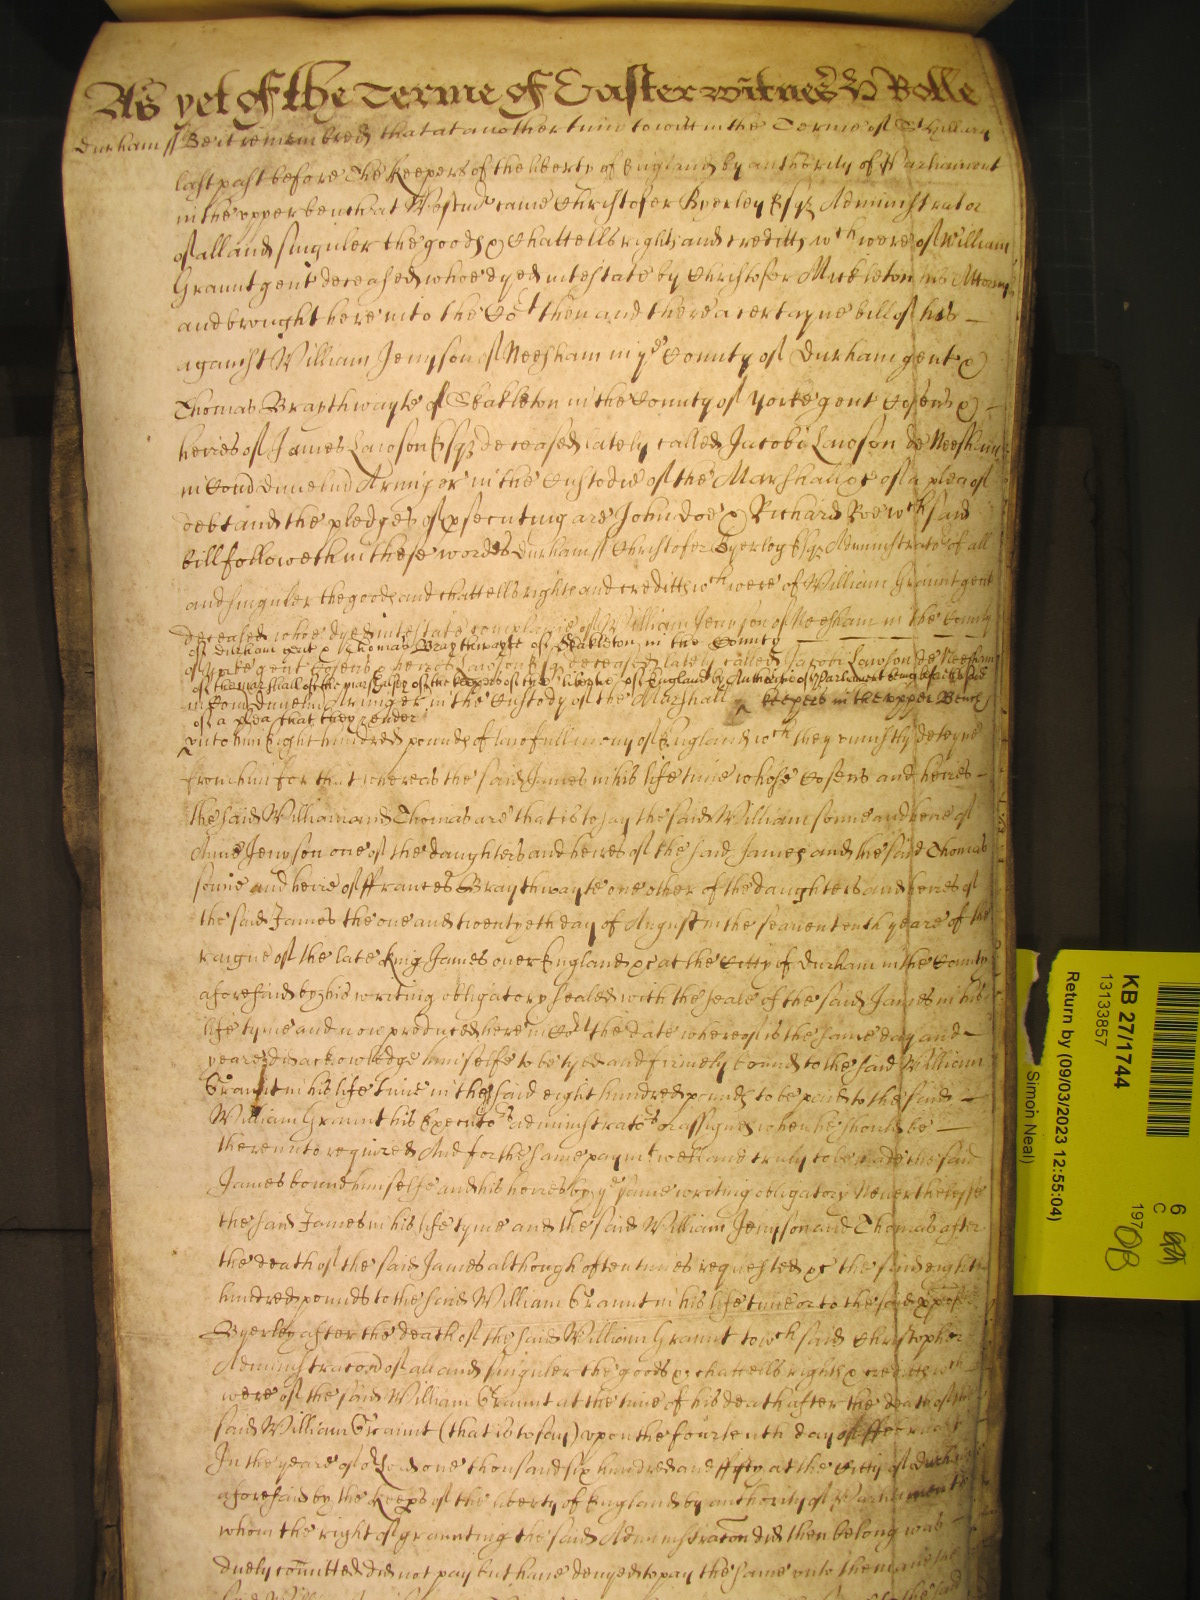 As yet of the Terme of Easter witnes H Rolle
Durham ss Be it remembred that at another time to witt in the Terme of St Hillary
last past before The Keepers of the liberty of England by authority of Parliament
in the upper bench at Westmr came Christofer Byerley Esqr Administrator
of all and singuler the goods & Chattells rights and creditts wch were of William
Graunt gent deceased whoe dyed intestate by Christofer Mickleton his Attorny
and brought here into the Cort then and there a certayne bill of his
against William Jenyson of Neesham in ye County of Durham gent &
Thomas Braythwayte of Skakleton in the County of Yorke gent Cosens &
heires of James Lawson Esqr deceased lately called Jacobi Lawson de Neesham
in Com Dunelm Armiger in the Custodie of the Marshall &c of a plea of
debt and the pledges of psecuting are John doe & Richard Roe wch said
bill followeth in these words Durham ss Christofer Byerley Esqr Administrator of all
and singuler the goods and chattells rights and creditts wch were of William Graunt gent
deceased whoe dyed intestate complaines of William Jenyson of Neesham in the County
of Durham gent & Thomas Braythwayte of Skakleton in the County
of Yorke gent Cosens & heires of Lawson Esqr deceased lately called Jacobi Lawson de Neesham
of the Marshall of the Marshalsey of the keepers of the libertie of England by Authoritie of Parliament being before the said
in Com Dunelm Armiger in the Custody of the Marshall keepers in the upper Bench
of a plea that they render
unto him Eight hundred pounds of lawfull mony of England wch they uniustly deteyne
from him for that whereas the said James in his life time whose Cosens and heires
the said William and Thomas are that is to say the said William sonne and heire of
Anne Jenyson one of the daughters and heires of the said James and the said Thomas
sonne and heire of ffrances Braythwayte one other of the daughters and heires of
the said James the one and twentyeth day of August in the seaventeenth yeare of the
raigne of the late King James over England &c at the Citty of Durham in the County
aforesaid by his writing obligatory sealed with the seale of the said James in his
life tyme and now produced here in Cort the date whereof is the same day and
yeare did acknowledge himselfe to be tyed and firmely bound to the said William
Graunt in his life time in the said eight hundred pounds to be paid to the said
William Graunt his Executors administrators or assignes when he should be
thereunto required And for the same paymt well and truly to be made the said
James bound himselfe and his heires by ye same writing obligatory Neverthelesse
the said James in his life tyme and the said William Jenyson and Thomas after
the death of the said James although often times requested &c the said eight
hundred pounds to the said William Graunt in his life time or to the said
Byerley after the death of the said William Graunt to wch said Christopher
Administracon of all and singuler the goods & chattells rights & creditts wch
were of the said William Graunt at the time of his death after the death of the
said William Graunt (that is to say) upon the fourteenth day of ffebruary
In the yeare of or Lord one thousand six hundred and fifty at the Citty of Durham
aforesaid by the Keeps of the liberty of England by authority of Parliament to
whom the right of graunting the said Administracon did then belong was
duely comitted did not pay but have denyed to pay the same unto them
KB 27/1744
13133857
Return by (09/03/2023 12:55:04)
Simon Neal)
6
C
197